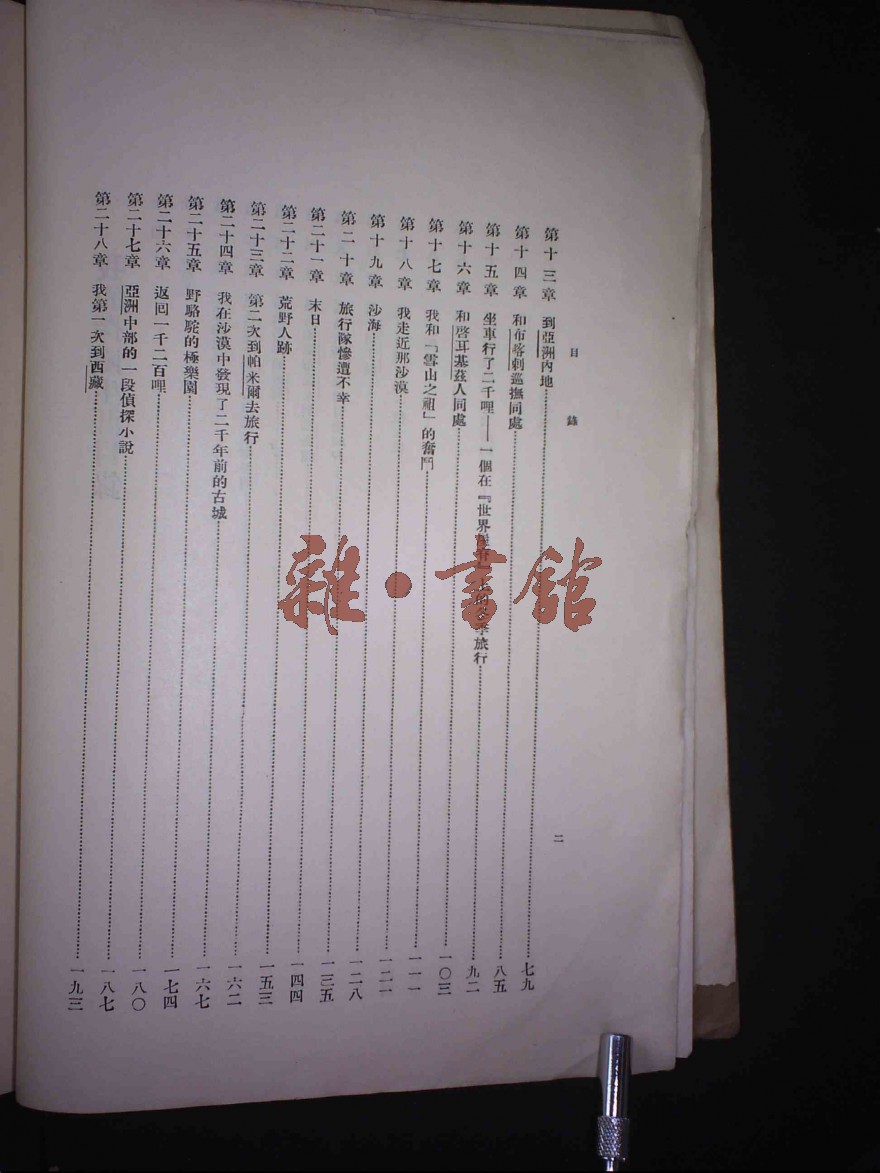 目錄
二
第十三章 到亞洲內地……七九
第十四章 和布喀剌巡撫同處……八五
第十五章 坐車行了二千哩——一個在『世界 季旅行……九二
第十六章 和啓耳基茲人同處……一〇三
第十七章 我和「雪山之祖」的奮鬥……一一一
第十八章 我走近那沙漠……一二一
第十九章 沙海……一二八
第二十章 旅行隊慘遭不幸……一三五
第二十一章 末日……一四四
第二十二章 荒野人跡……一五三
第二十三章 第二次到帕米爾去旅行……一六二
第二十四章 我在沙漠中發現了二千年前的古城……一六七
第二十五章 野駱駝的極樂園……一七四
第二十六章 返回一千二百哩……一八〇
第二十七章 亞洲中部的一段偵探小說……一八七
第二十八章 我第一次到西藏……一九三
雜·書館